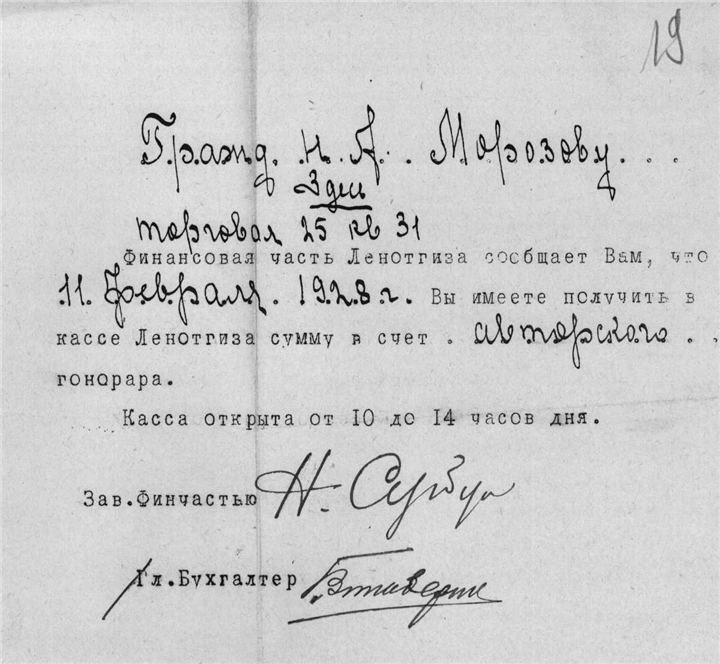 19
Гражд. Н. А. Морозову. . .
Здесь
торговая 25 кв 31
Финансовая часть Ленотгиза сообщает Вам, что
.11. февраля. 1928 г. Вы имеете получить в
кассе Ленотгиза сумму в счет . авторского . .
гонорара.
Касса открыта от 10 до 14 часов дня.
Зав.Финчастью Н.
Гл.Бухгалтер